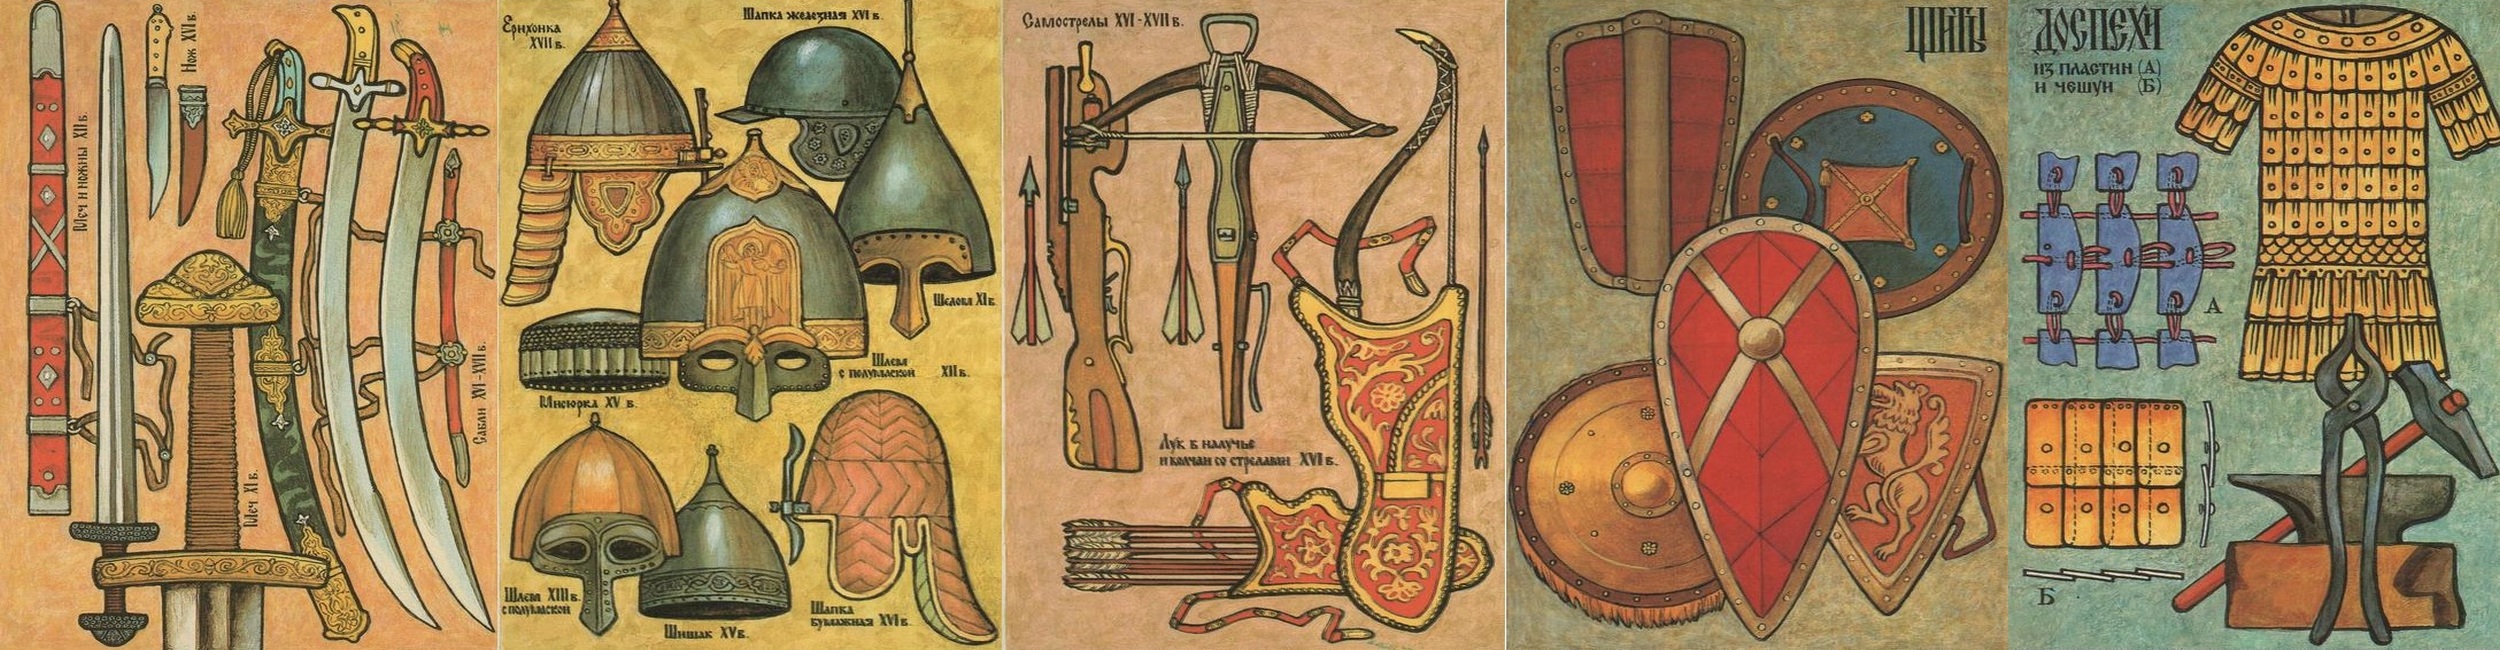 Меч и ножны XII в.
Нож XVI в.
Меч XI в.
Сабли XVI-XVII в.
Ерихонка
XVII в.
Шапка железная XVI в.
Шелом XI в.
Шлем
с полумаской XII в.
Мисюрка XV в.
Шлем XIII в.
с полумаской
Шишак XV в.
Шапка
бумажная XVI в.
Самострелы XVI-XVII в.
Лук в налучье
и колчан со стрелами XVI в.
ЩИТЫ
ДОСПЕХИ
из пластин (А)
и чешуи (Б)
А
Б